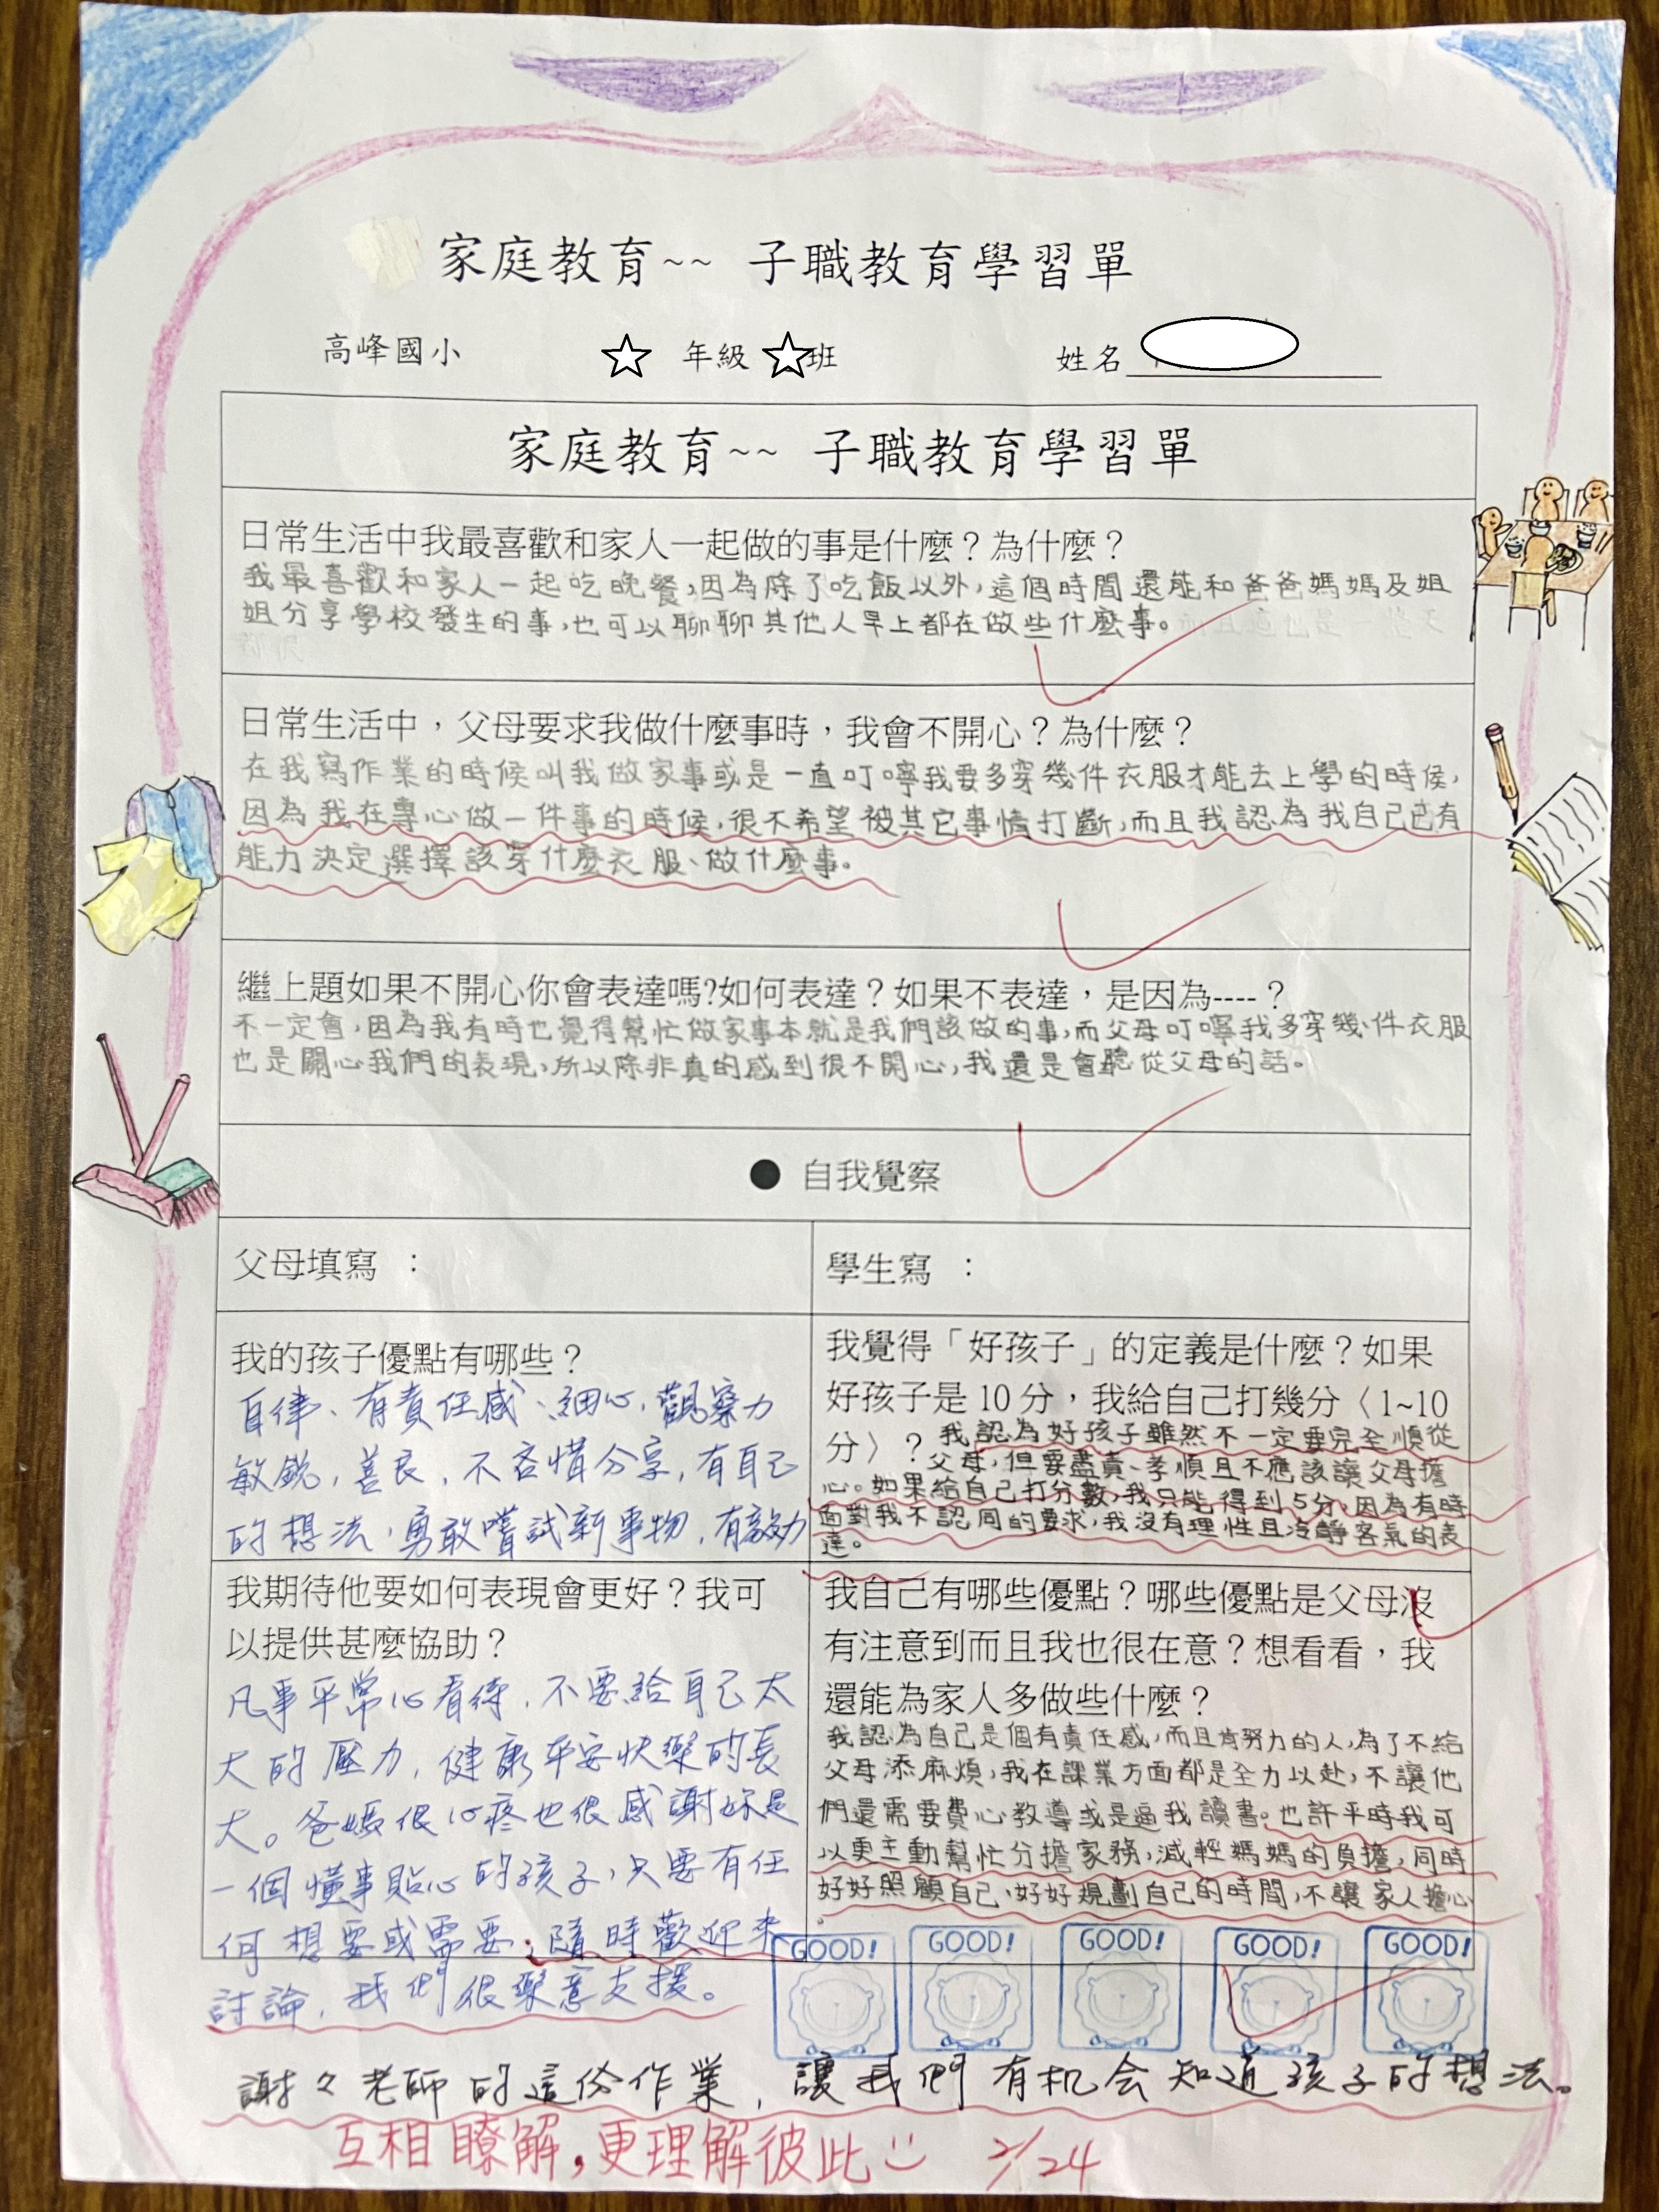 家庭教育~~ 子職教育學習單
高峰國小 年級 班 姓名
家庭教育~~ 子職教育學習單
日常生活中我最喜歡和家人一起做的事是什麼？為什麼？
我最喜歡和家人一起吃晚餐，因為除了吃飯以外，這個時間還能和爸爸媽媽及姐
姐分享學校發生的事，也可以聊聊其他人早上都在做些什麼事。
日常生活中，父母要求我做什麼事時，我會不開心？為什麼？
在我寫作業的時候叫我做家事或是一直叮嚀我要多穿幾件衣服才能去上學的時候，
因為我在專心做一件事的時候，很不希望被其它事情打斷，而且我認為我自己已有
能力決定選擇該穿什麼衣服、做什麼事。
繼上題如果不開心你會表達嗎?如何表達？如果不表達，是因為----？
不一定會，因為我有時也覺得幫忙做家事本就是我們該做的事，而父母叮嚀我多穿幾件衣服
也是關心我們的表現，所以除非真的感到很不開心，我還是會聽從父母的話。
● 自我覺察
父母填寫 ：
學生寫 ：
我的孩子優點有哪些？
自律、有責任感、細心，觀察力
敏銳，善良，不吝惜分享，有自己
的想法，勇敢嚐試新事物，有效力
我覺得「好孩子」的定義是什麼？如果
好孩子是 10 分，我給自己打幾分〈 1~10
分〉？我認為好孩子雖然不一定要完全順從
父母，但要盡責、孝順且不應該讓父母擔
心。如果給自己打分數，我只能得到5分，因為有時
面對我不認同的要求，我沒有理性且冷靜客氣的表
達。
我期待他要如何表現會更好？我可
以提供甚麼協助？
凡事平常心看待，不要給自己太
大的壓力，健康平安快樂的長
大。爸媽很心疼也很感謝妳是
一個懂事貼心的孩子，只要有任
何想要或需要，隨時歡迎來
討論，我們很樂意支援。
我自己有哪些優點？哪些優點是父母沒
有注意到而且我也很在意？想看看，我
還能為家人多做些什麼？
我認為自己是個有責任感，而且肯努力的人，為了不給
父母添麻煩，我在課業方面都是全力以赴，不讓他
們還需要費心教導或是逼我讀書。也許平時我可
以更主動幫忙分擔家務，減輕媽媽的負擔，同時
好好照顧自己，好好規劃自己的時間，不讓家人擔心
。
GOOD! GOOD! GOOD! GOOD! GOOD!
謝々老師的這份作業，讓我們有机会知道孩子的想法。
互相瞭解，更理解彼此 2/24